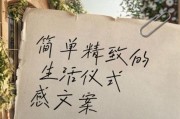 简单精致的
生活仪式
感文案